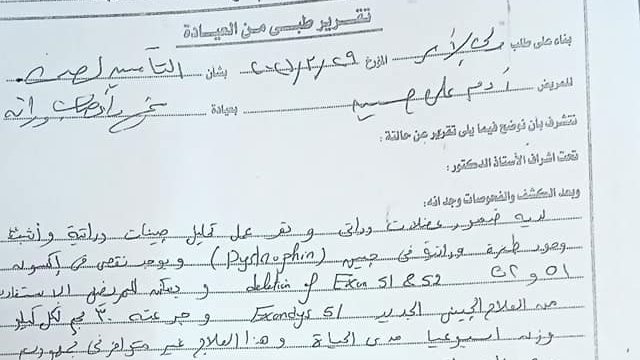 تقرير طبى من العيادة
بناء على طلب ولى الأمر المؤرخ ٢٠٢١/٣/٢٩ بشأن التأمين الصحى
للمريض آدم على بعيادة مخ وأعصاب وراثة
نتشرف بأن نوضح فيما يلى تقرير عن حالتة :
تحت اشراف الأستاذ الدكتور :
وبعد الكشف والفحوصات وجد انه:
لديه ضمور عضلات وراثى و تم عمل تحليل جينات وراثية و أثبت
وجود طفرة وراثية فى جين (Dystrophin) ويوجد نقص فى إكسون
٥١ و ٥٢ deletion of Exon 51 & 52 و يمكن للمريض الاستفادة
من العلاج الجينى الجديد Exondys 51 وجرعته ٣٠ مجم لكل كيلو
وزنه اسبوعيا مدى الحياة وهذا العلاج غير متوافر فى